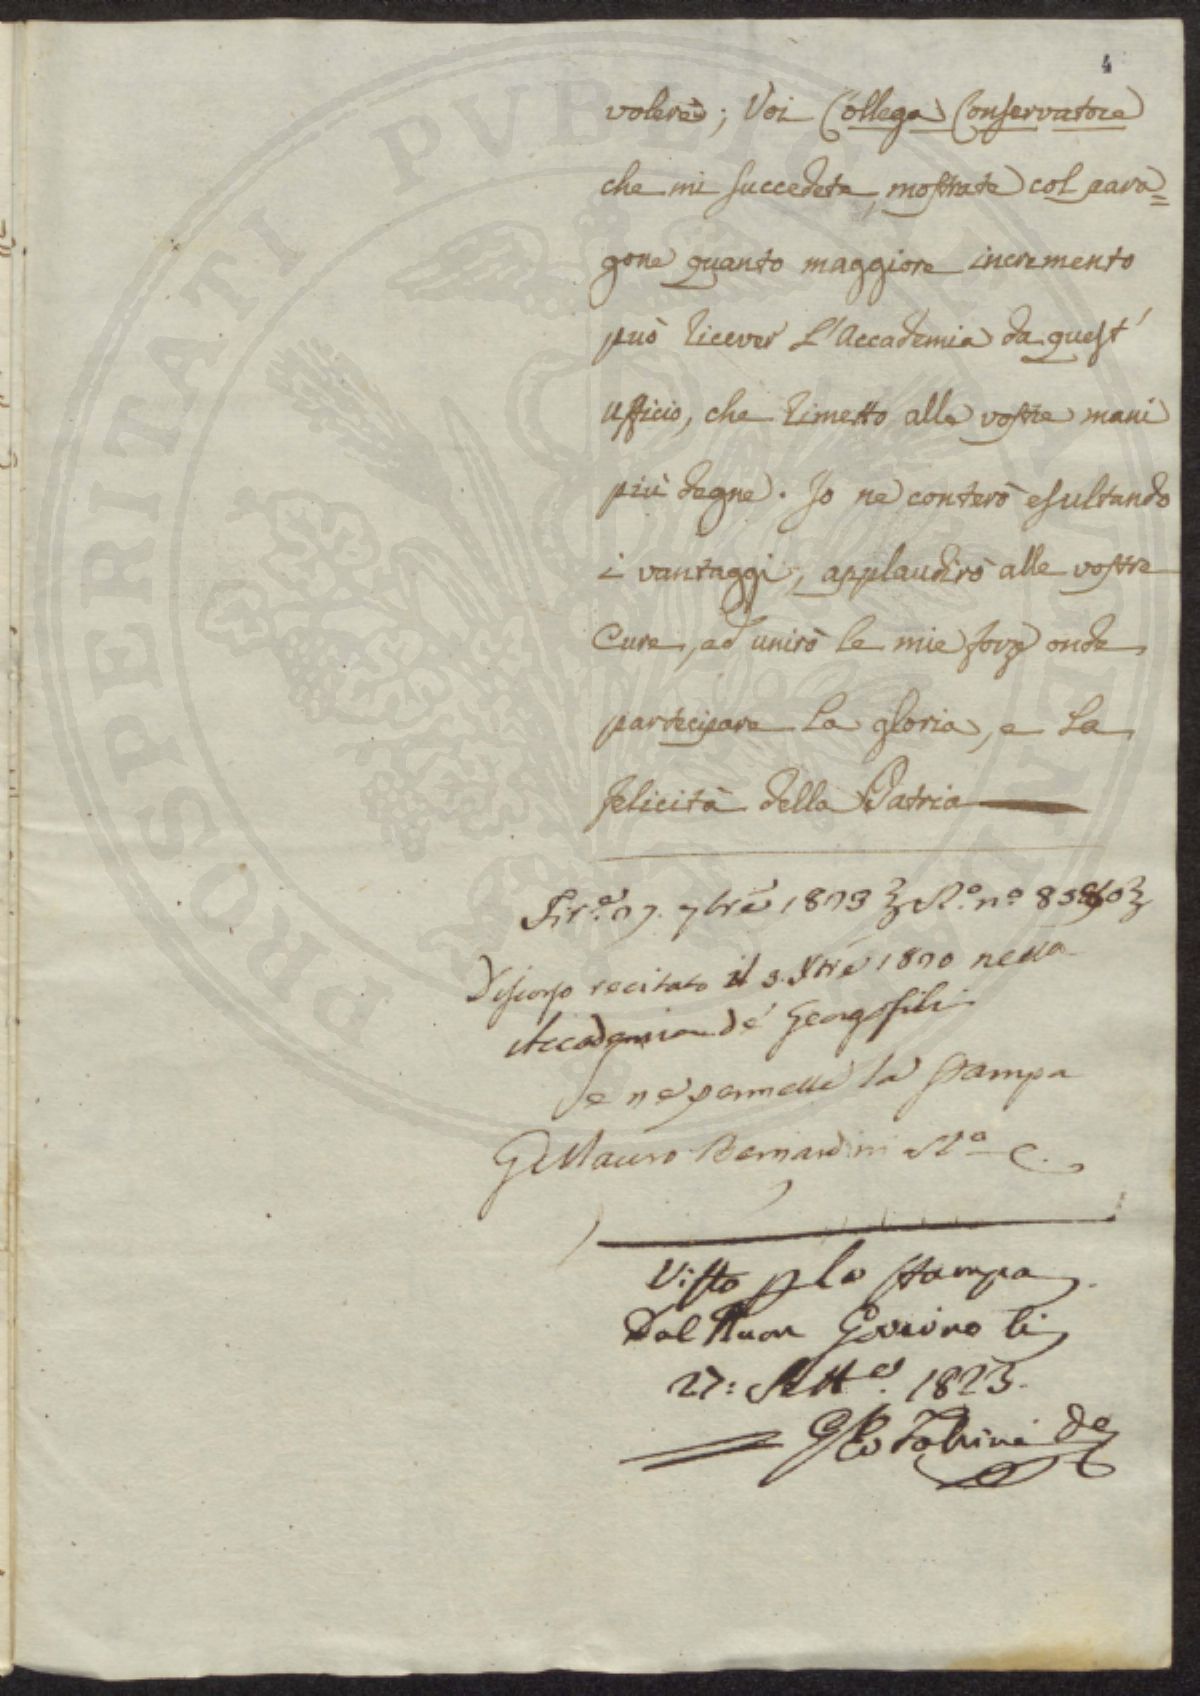 4
volere; Voi Collega Conservatore
che mi succedete, mostrate col para=
gone quanto maggiore incremento
può ricever l'Accademia da quest'
ufficio, che rimetto alle vostre mani
più degne. Io ne conterò esultando
i vantaggi, applaudirò alle vostre
cure, ed unirò le mie forze onde
partecipare la gloria, e la
felicità della Patria
Discorso recitato il 3. Xbre 1810 nella
Accademia de' Georgofili
Se ne permette la stampa
G. Mauro Bernardini
Visto p la stampa
Dal Buon Governo li
27: Sette. 1823.
PROSPERITATI PUBLICAE AUGENDAE